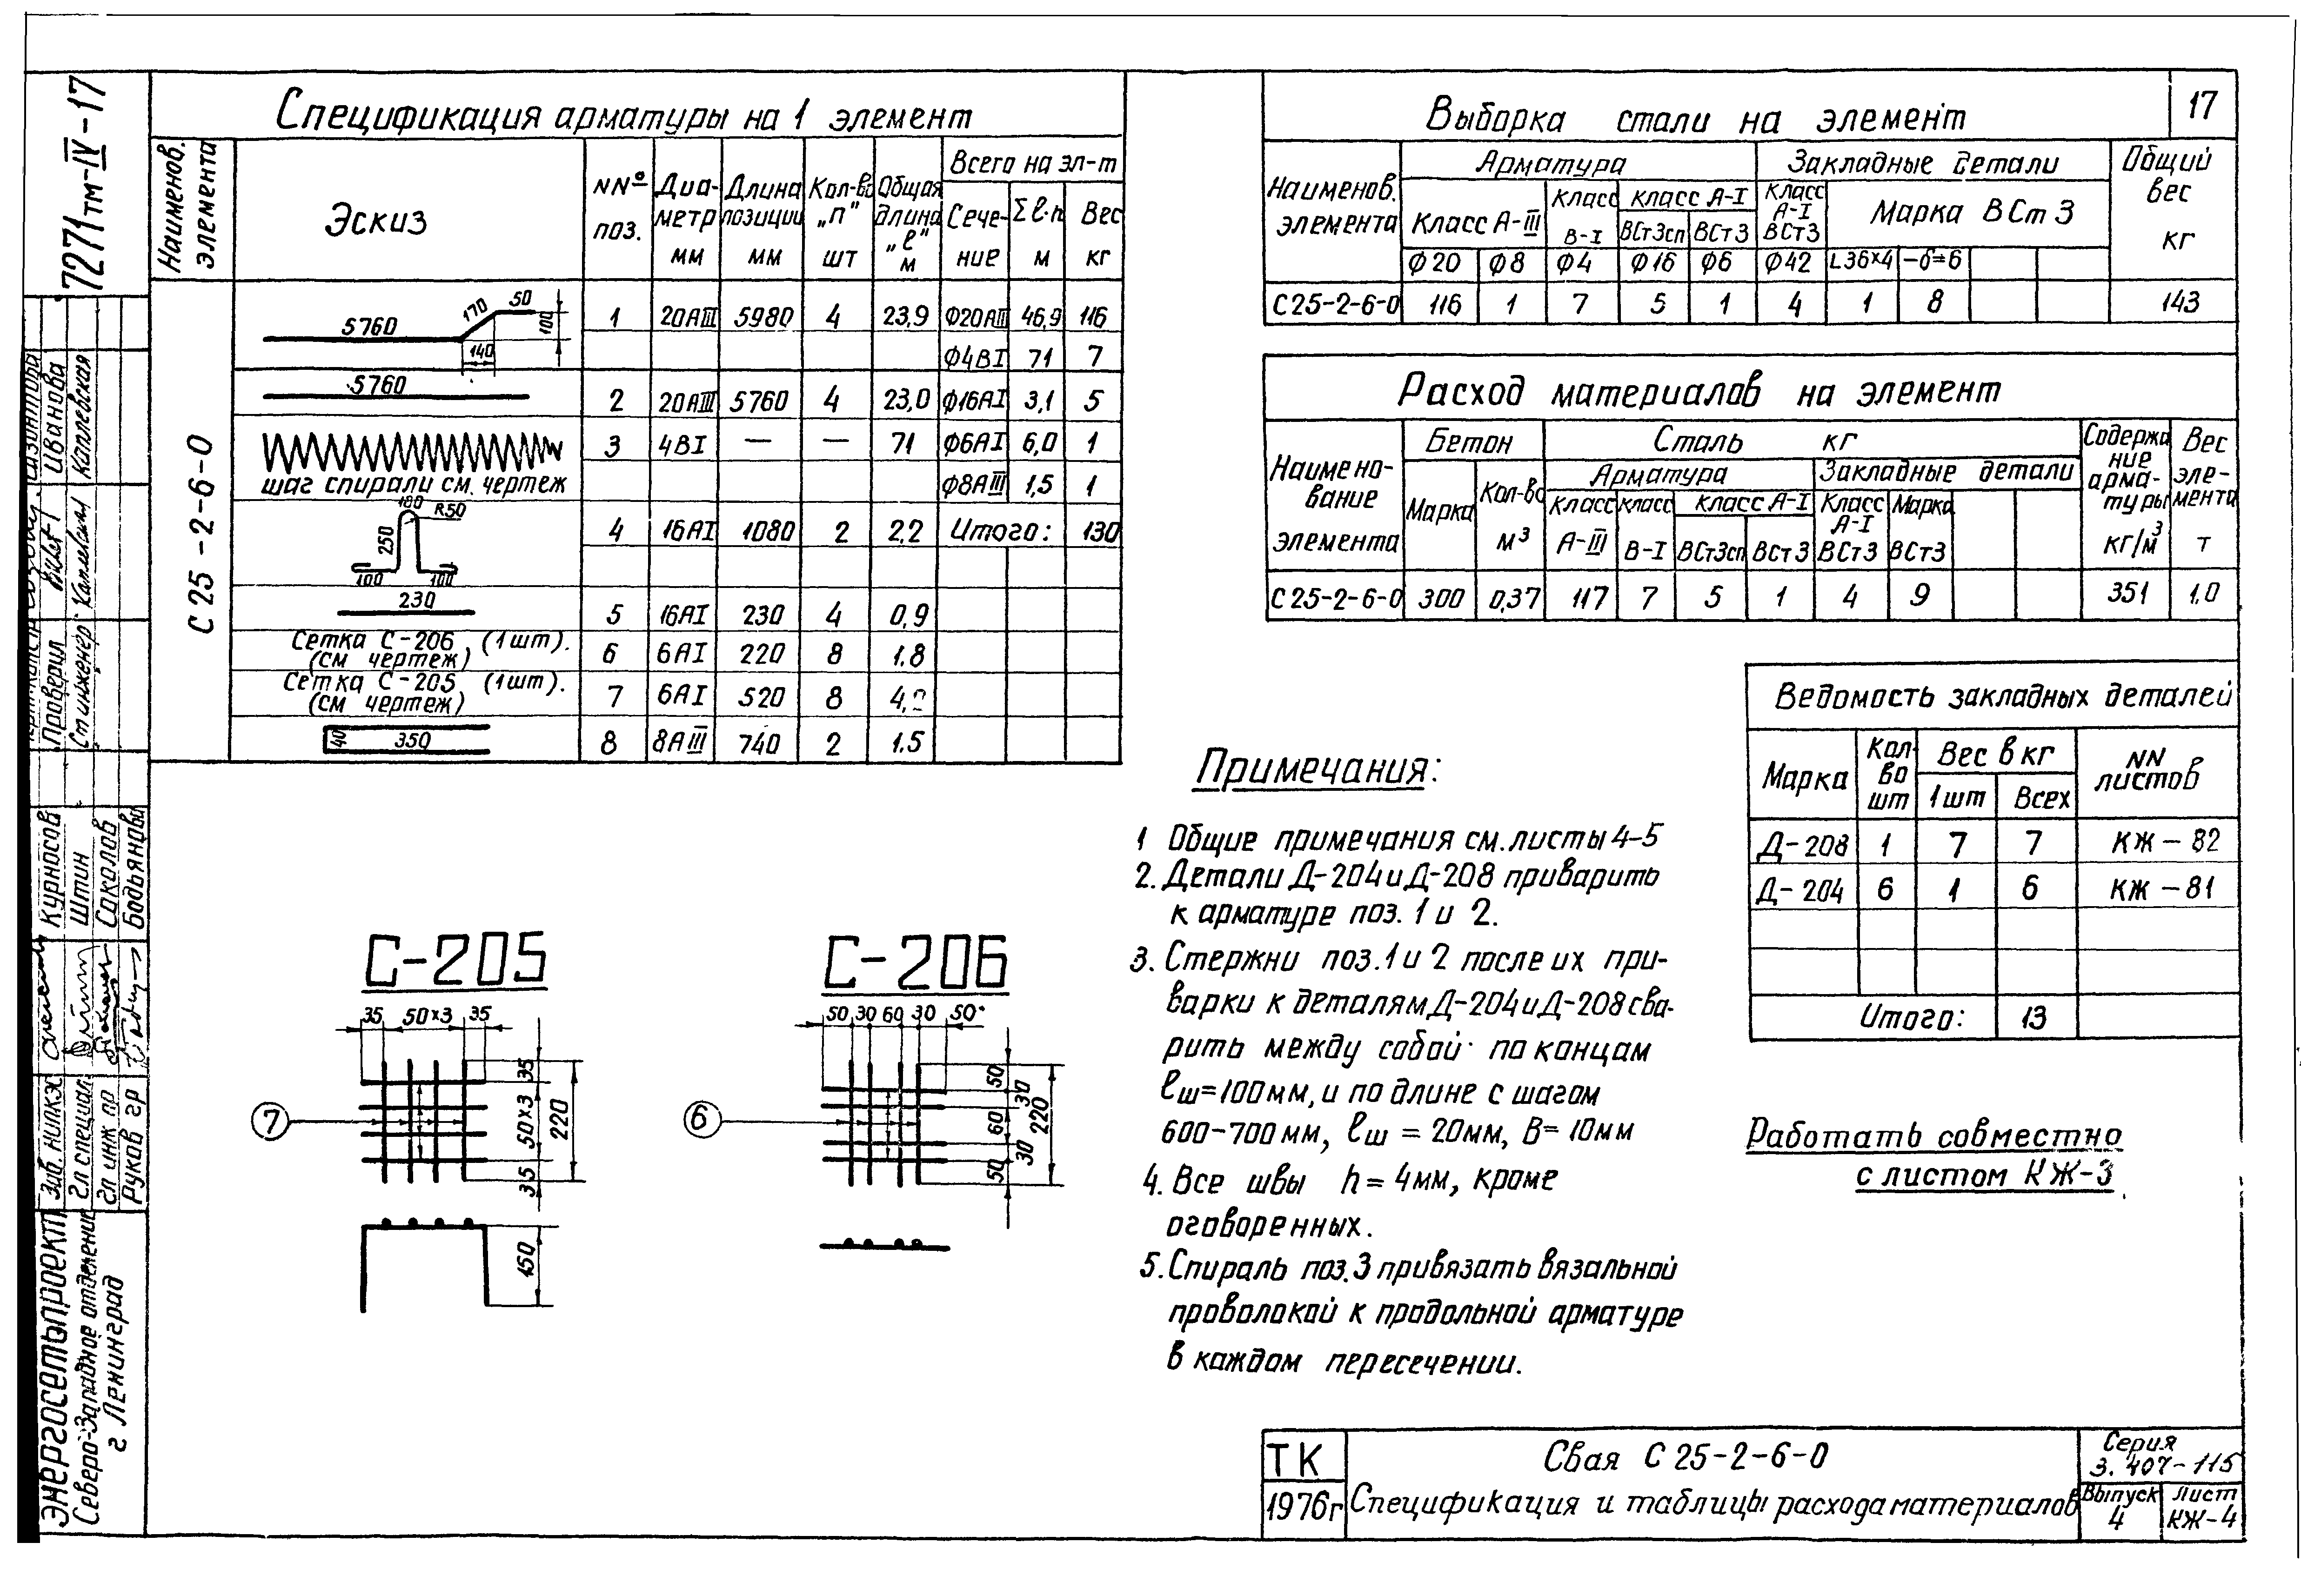 7271тм-IV-17
17
Спецификация арматуры на 1 элемент
Наименов. элемента
Эскиз
NNº поз.
Диаметр мм
Длина позиции мм
Кол-во „п" шт
Общая длина „ℓ" м
Всего на эл-т
Сечение
Σℓ·п м
Вес кг
С 25-2-6-0
5760 170 50 100 140
1 20АIII 5980 4 23,9 Ф20АIII 46,9 116
Ф4ВI 71 7
5760
2 20АIII 5760 4 23,0 Ф16АI 3,1 5
3 4ВI — — 71 Ф6АI 6,0 1
шаг спирали см. чертеж
Ф8АIII 1,5 1
180 R50 250 100 100
4 16АI 1080 2 2,2 Итого: 130
230
5 16АI 230 4 0,9
Сетка С-206 (1шт).
(см чертеж)
6 6АI 220 8 1.8
Сетка С-205 (1шт).
(см чертеж)
7 6АI 520 8 4,2
40 350
8 8АIII 740 2 1.5
Выборка стали на элемент
Наименов. элемента
Арматура
Закладные детали
Общий вес кг
Класс А-III
Класс В-I
класс А-I
Класс А-I ВСт3
Марка ВСт3
ВСт3сп ВСт3
Ф20 Ф8 Ф4 Ф16 Ф6 Ф42 L36×4 -δ=6
С25-2-6-0 116 1 7 5 1 4 1 8 143
Расход материалов на элемент
Наименование элемента
Бетон
Сталь кг
Содержание арматуры кг/м³
Вес элемента т
Марка
Кол-во м³
Арматура
Закладные детали
Класс А-III
класс В-I
класс А-I
Класс А-I ВСт3
Марка ВСт3
ВСт3сп ВСт3
С25-2-6-0 300 0,37 117 7 5 1 4 9 351 1.0
Ведомость закладных деталей
Марка
Кол-во шт
Вес в кг
1шт Всех
NN листов
Д-208 1 7 7 КЖ-82
Д-204 6 1 6 КЖ-81
Итого: 13
Примечания:
1 Общие примечания см. листы 4-5
2. Детали Д-204 и Д-208 приварить
к арматуре поз. 1 и 2.
3. Стержни поз. 1 и 2 после их при-
варки к деталям Д-204 и Д-208 сва-
рить между собой по концам
ℓш=100мм, и по длине с шагом
600-700мм, ℓш = 20мм, В=10мм
4. Все швы h = 4мм, кроме
оговоренных.
5. Спираль поз. 3 привязать вязальной
проволокой к продольной арматуре
в каждом пересечении.
Работать совместно
с листом КЖ-3
С-205
35 50×3 35
35 50×3 35 220
7
150
С-206
50 30 60 30 50
50 30 60 30 50 220
6
ТК
1976г
Свая С 25-2-6-0
Спецификация и таблицы расхода материалов
Серия
3.407-115
Выпуск
4
Лист
КЖ-4
Энергосетьпроект
Северо-Западное отделение
г Ленинград
Зав. НИЛКЭС Курносов
Гл специал. Штин
Гл инж пр Соколов
Руков гр Бодьянова
Проверил Иванова
Ст инженер Каплевская